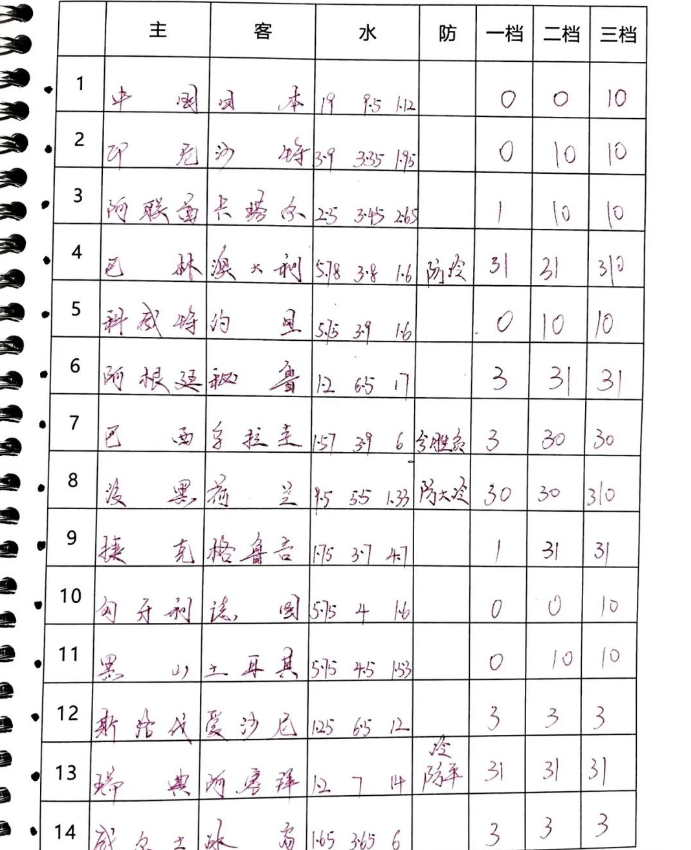 主 客 水 防 一档 二档 三档
1 中国 日本 19 9.5 1.12 0 0 10
2 印尼 沙特 3.9 3.35 1.95 0 10 10
3 阿联酋 卡塔尔 2.5 3.45 2.65 1 10 10
4 巴林 澳大利 5.78 3.8 1.6 防冷 31 31 310
5 科威特 约旦 5.75 3.9 1.6 0 10 10
6 阿根廷 秘鲁 1.2 6.5 17 3 31 31
7 巴西 乌拉圭 1.57 3.9 6 分胜负 3 30 30
8 波黑 荷兰 9.5 5.5 1.33 防大冷 30 30 310
9 捷克 格鲁吉 1.75 3.7 4.7 1 31 31
10 匈牙利 德国 5.75 4 1.6 0 0 10
11 黑山 土耳其 5.75 4.5 1.53 0 10 10
12 斯洛伐 爱沙尼 1.25 6.5 12 3 3 3
13 瑞典 阿塞拜 1.2 7 14 冷防平 31 31 31
14 威尔士 冰岛 1.65 3.65 6 3 3 3